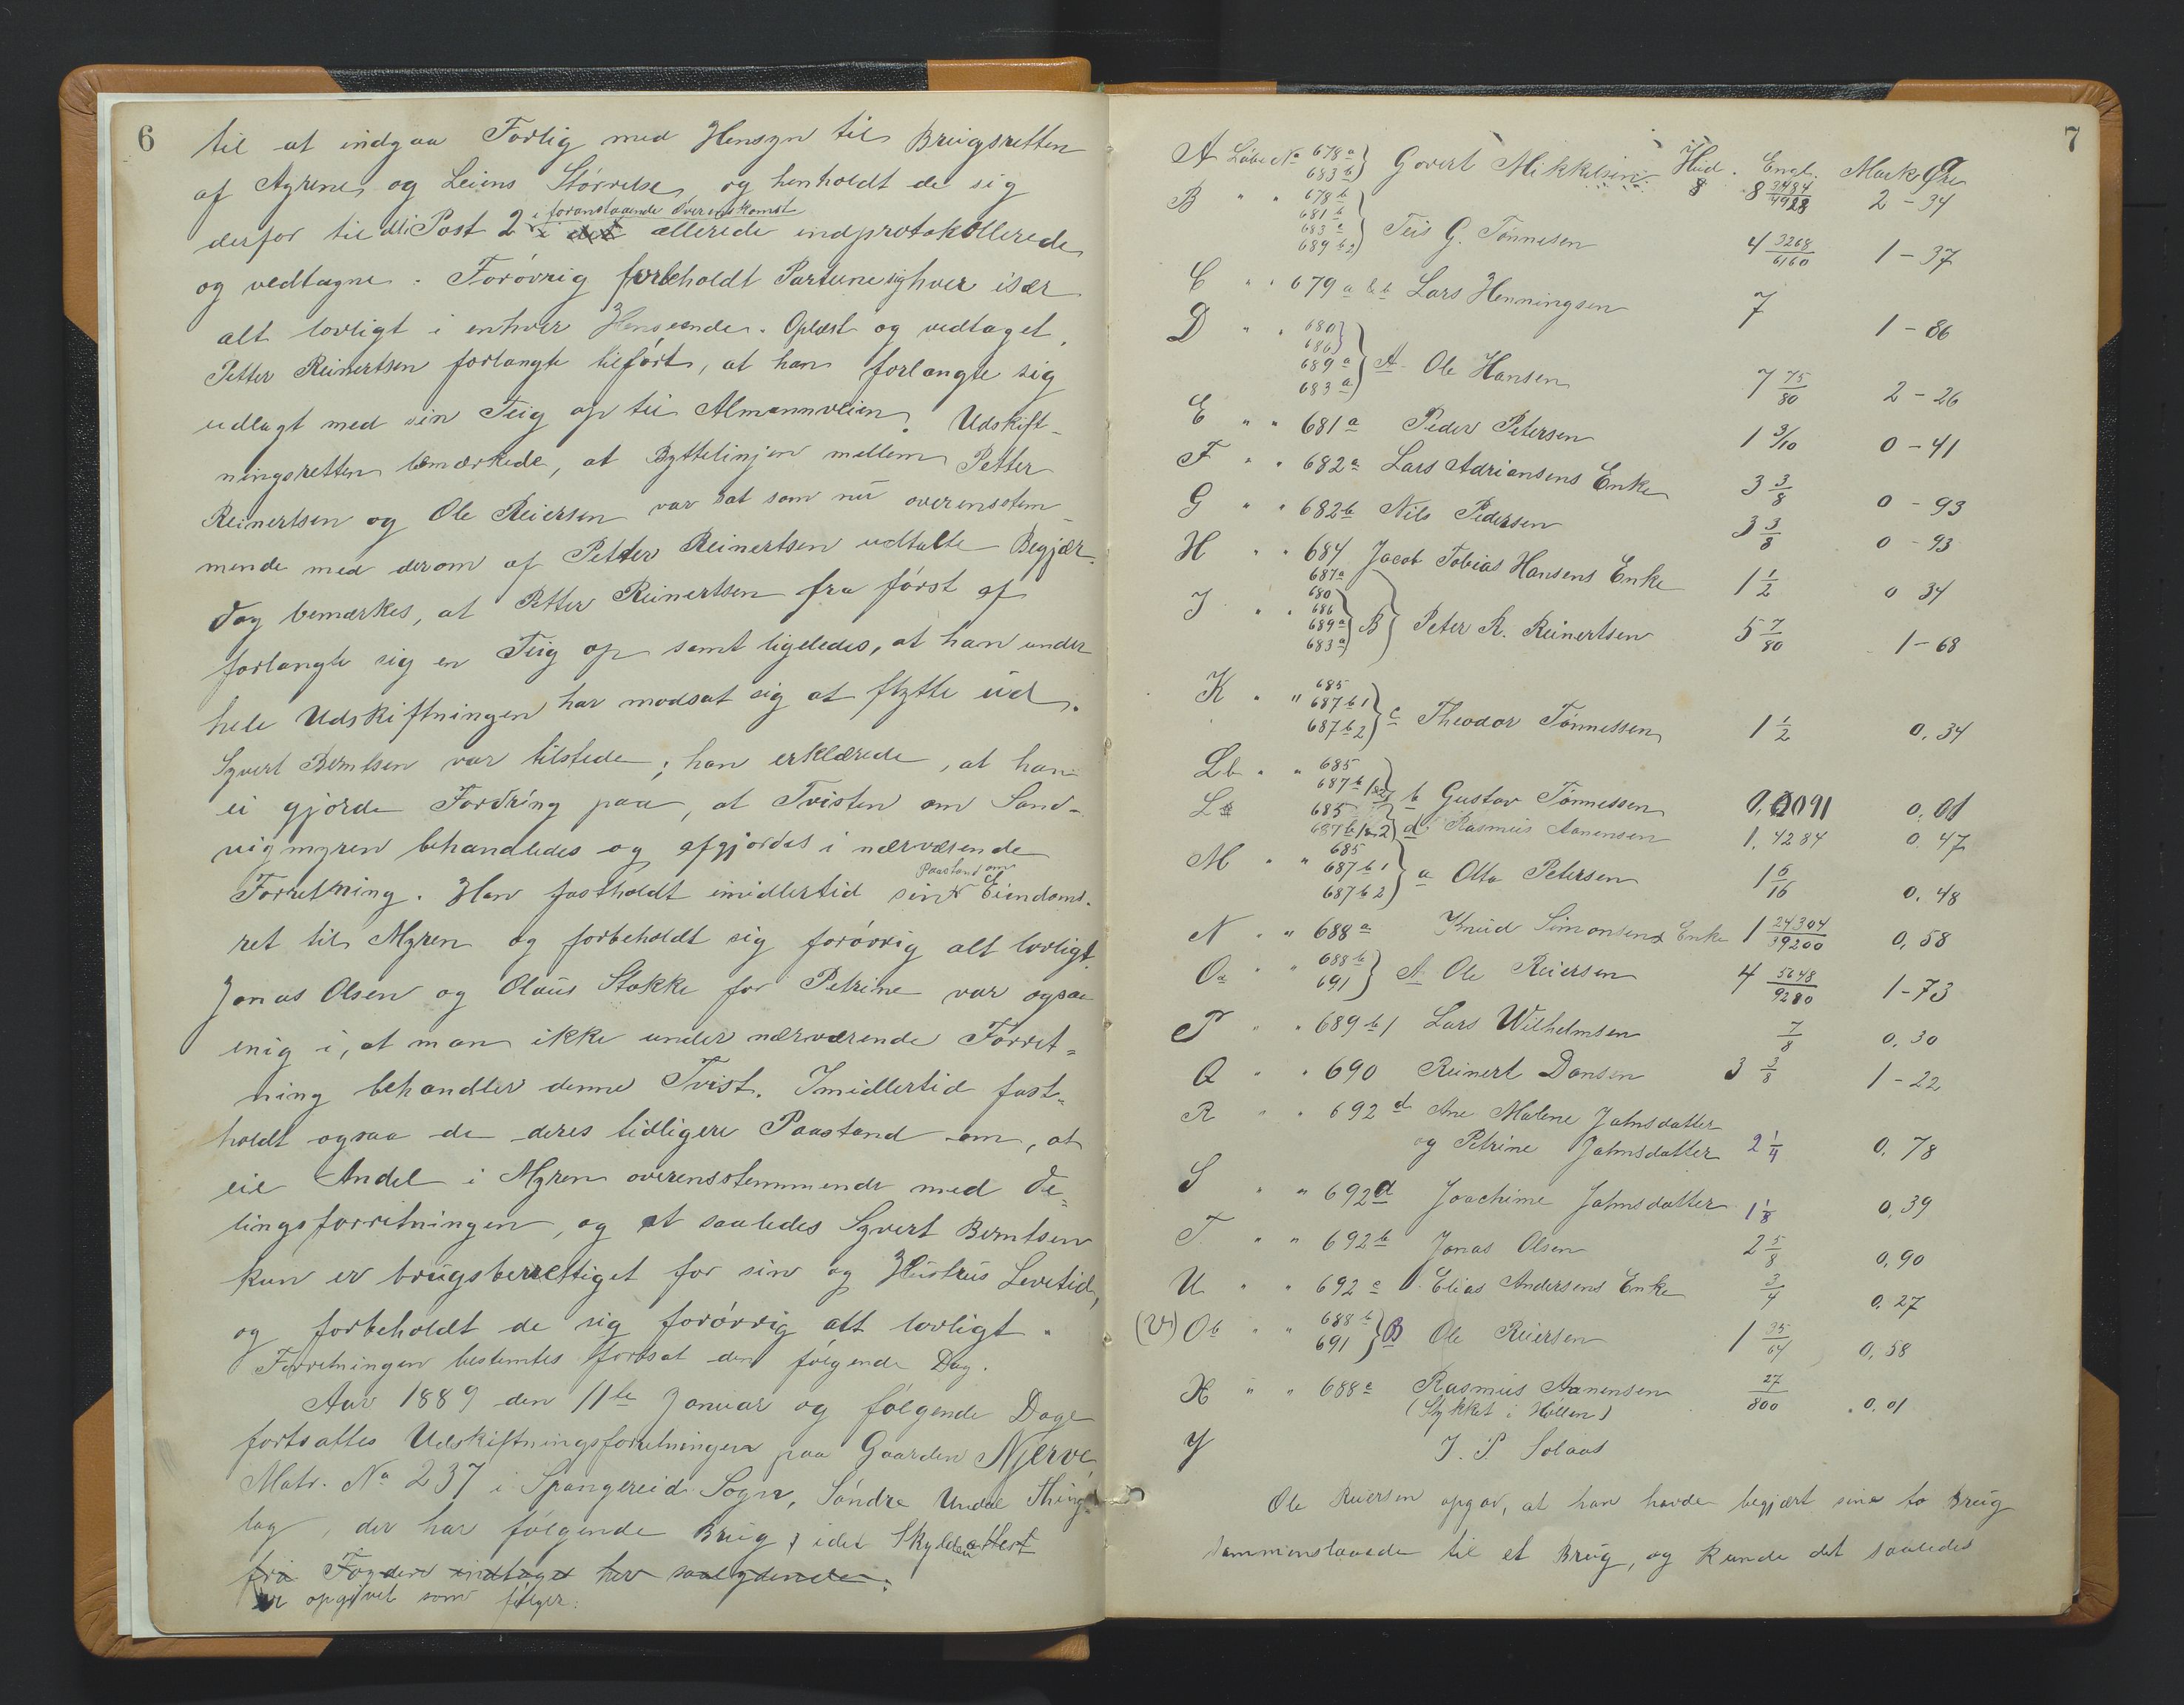 6
til at indgaa Forlig med Hensyn til Brugsretten
af Myrene og Leiens Størrelse og henholdt de sig
i foranstaaende Overenskomst
derfor til det i Post 2 i det allerede indprotokollerede
og vedtagne. Forøvrig forbeholdt Parterne sig hver især
alt lovligt i enhver Henseende. Oplæst og vedtaget.
Petter Reinertsen forlangte tilført, at han forlangte sig
udlagt med sin Teig op til Almannveien. Udskift-
ningsretten bemærkede, at Byttelinjen mellem Petter
Reinertsen og Ole Reiersen var sat som nu overensstem-
mende med derom af Petter Reinertsen udtalte Begjær.
Dog bemærkes, at Petter Reinertsen fra først af
forlangte sig en Teig op samt ligeledes, at han under
hele Udskiftningen har modsat sig at flytte ud.
Syvert Berntsen var tilstede; han erklærede, at han
ei gjorde Fordring paa, at Tvisten om Sand-
vigmyren behandledes og afgjordes i nærværende
Paastand om
Forretning. Han fastholdt imidlertid sin Eiendoms-
ret til Myren og forbeholdt sig forøvrig alt lovligt.
Jonas Olsen og Olaus Stokke for Petrine var ogsaa
enig i, at man ikke under nærværende Forret-
ning behandler denne Tvist. Imidlertid fast-
holdt ogsaa de deres tidligere Paastand om, at
eie Andel i Myren overensstemmende med De-
lingsforretningen, og at saaledes Syvert Berntsen
kun er brugsberettiget for sin og Hustrus Levetid,
og forbeholdt de sig forøvrig alt lovligt.
Forretningen bestemtes fortsat den følgende Dag.
Aar 1889 den 11te Januar og følgende Dage
fortsattes Udskiftningsforretningen paa Gaarden Njerve
Matr. No 237 i Spangereid Sogn, Søndre Undal Thing-
lag, der har følgende Brug, idet Skyld
fra Fogden indtaget her saalydende:
er opgivet som følger:
7
A Løbe No 678a 683b Govert Mikkelsen Hud. Engl. Mark Øre
8 3484/4928 2-34
B " " 678b 681b 683c 689b2 Teis G. Tønnesen 4 3268/6160 1-37
C " " 679 a & b Lars Henningsen 7 1-86
D " " 680 686 689a 683a A. Ole Hansen 7 75/80 2-26
E " " 681a Peder Petersen 1 9/10 0-41
F " " 682a Lars Adriansens Enke 3 3/8 0-93
G " " 682b Nils Pedersen 3 3/8 0-93
H " " 684 Jacob Tobias Hansens Enke 1 1/2 0 34
J " " 687a 680 686 689a 683a B Peter R. Reinertsen 5 7/80 1-68
K " " 685 687b1 687b2 c Theodor Tønnessen 1 1/2 0,34
Lb " " 685 687b1&2 b Gustav Tønnessen 0,0091 0,01
L 685 687b1&2 d Rasmus Aanensen 1,4284 0,47
M " " 685 687b1 687b2 a Otto Petersen 1 6/16 0,48
N " " 688a Knud Simonsens Enke 1 24304/39200 0,58
Oa " " 688b 691 A Ole Reiersen 4 5648/9280 1-73
P " " 689b1 Lars Wilhelmsen 7/8 0,30
Q " " 690 Reinert Dansen 3 3/8 1-22
R " " 692d Ane Malene Jahnsdatter
og Petrine Jahnsdatter 2 1/4 0,78
S " " 692a Joachime Jahnsdatter 1 1/8 0,39
T " " 692b Jonas Olsen 2 5/8 0,90
U " " 692c Elias Andersens Enke 3/4 0,27
(V) Ob " " 688b 691 B Ole Reiersen 1 35/64 0,58
X " " 688c Rasmus Aanensen 27/800 0,01
(Stykket i Høllen)
Y J. P. Solaas
Ole Reiersen opgav, at han havde begjært sine to Brug
sammenslaaede til et Brug, og kunde det saaledes